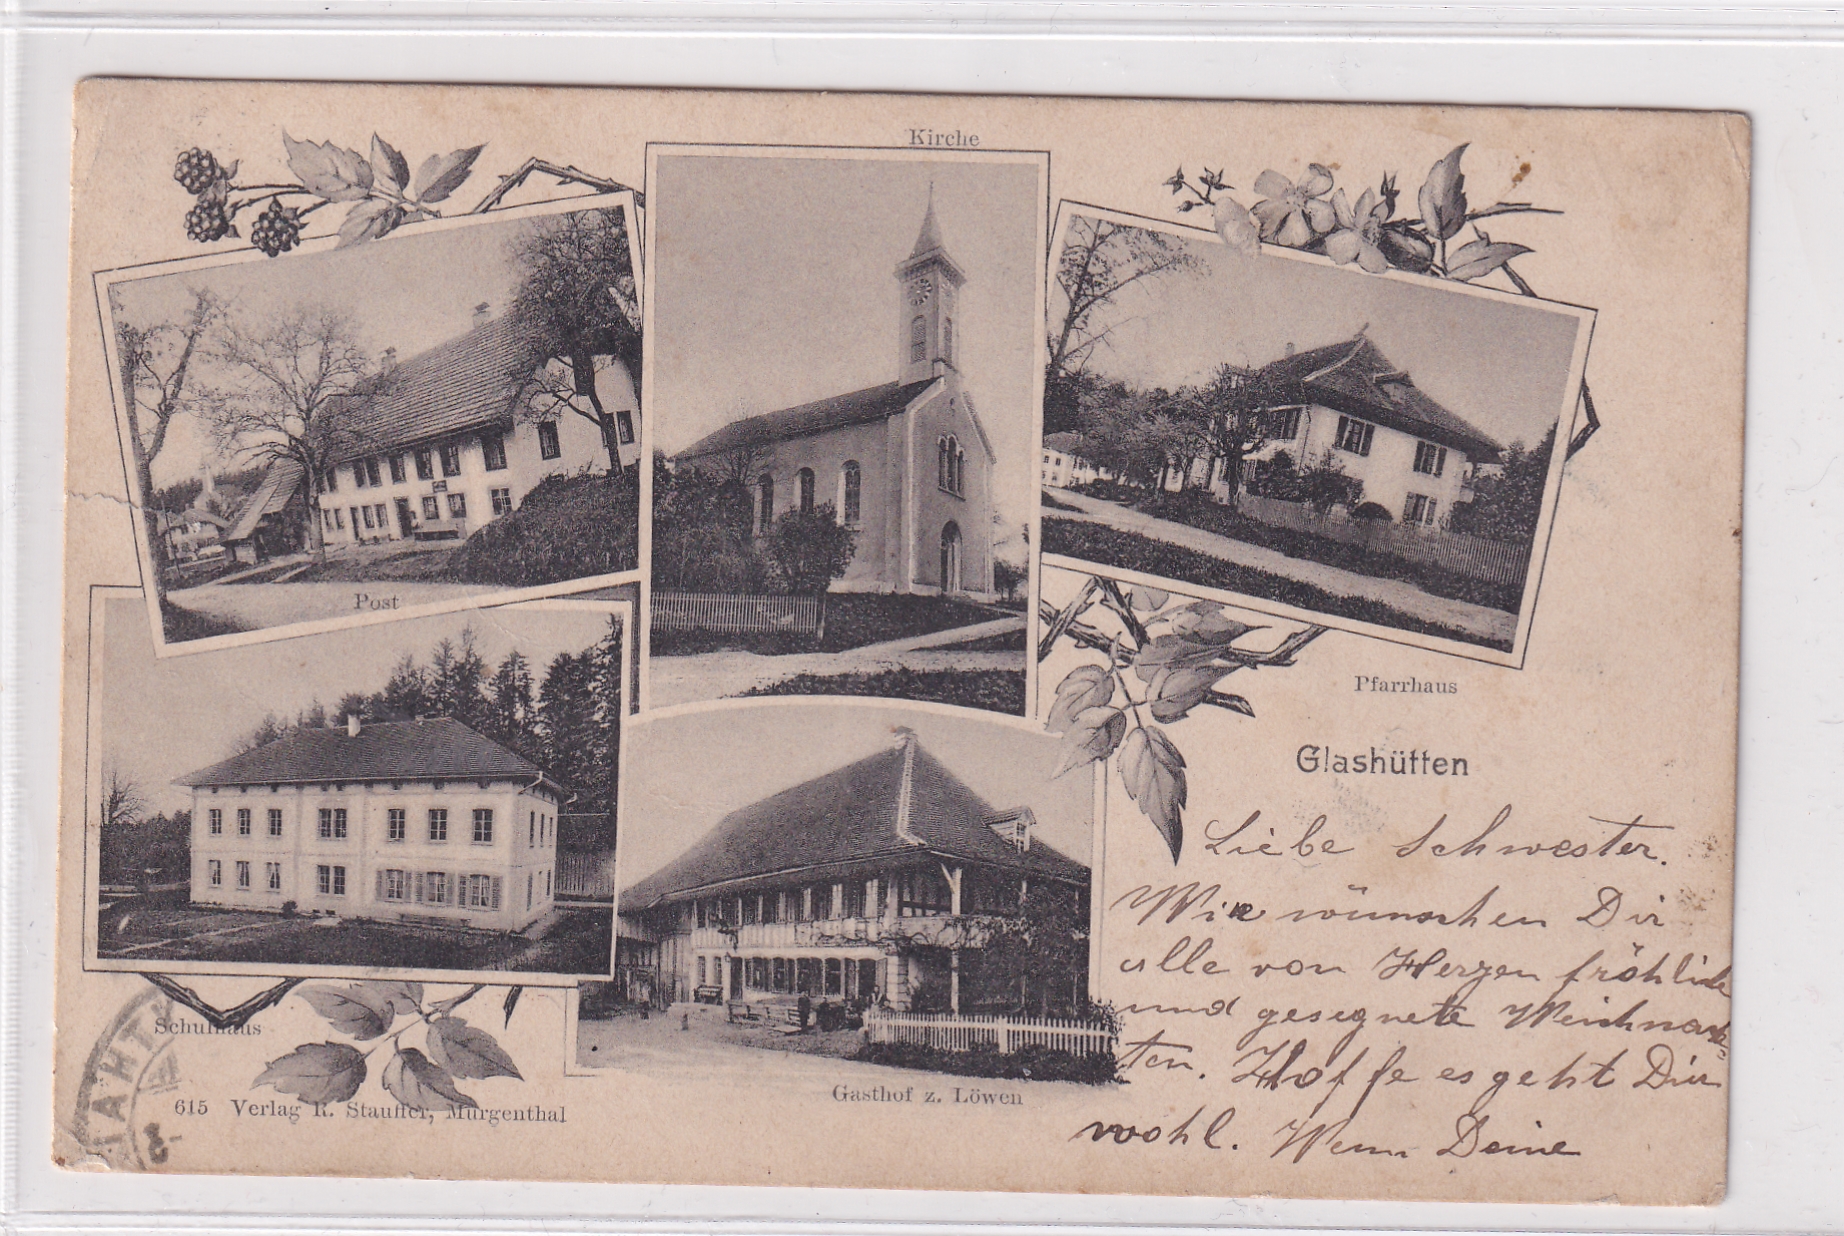 Kirche
Post
Pfarrhaus
Glashütten
Liebe Schwester.
Wir wünschen Dir
alle von Herzen fröhliche
und gesegnete Weichnach-
ten. Hoffe es geht Dir
wohl. Wenn Deine
Schulhaus
Gasthof z. Löwen
615 Verlag R. Stauffer, Murgenthal